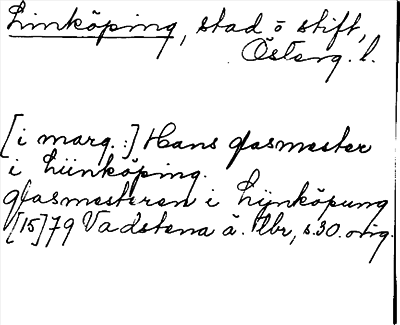 Linköping, stad o stift,
Österg. l.
[i marg.:] Hans glasmester
i Liinköping.
glasmesteren i Lijnköpung
[15]79 Vadstena ä. tbr, s. 30. orig.